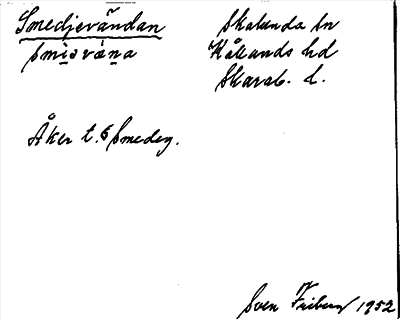 Smedjevändan
smisvàna
Skalunda sn
Kållands hd
Skarab. l.
Åker t. 6 Smedeg.
Sven Friberg 1952